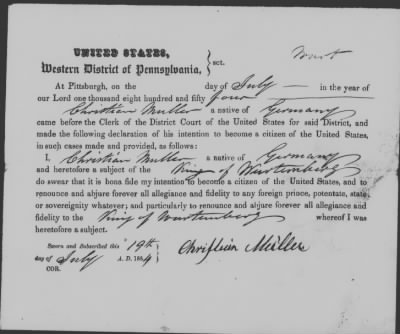 UNITED STATES,
Western District of Pennsylvania, } sct.
At Pittsburgh, on the day of July in the year of
our Lord one thousand eight hundred and fifty four
Christian Muller a native of Germany
came before the Clerk of the District Court of the United States for said District, and
made the following declaration of his intention to become a citizen of the United States,
in such cases made and provided, as follows:
I, Christian Muller a native of Germany
and heretofore a subject of the King of Wurtemberg
do swear that it is bona fide my intention to become a citizen of the United States, and to
renounce and abjure forever all allegiance and fidelity to any foreign prince, potentate, state
or sovereignty whatever; and particularly to renounce and abjure forever all allegiance and
fidelity to the King of Wurtemberg whereof I was
heretofore a subject.
Sworn and Subscribed this 19th
day of July A. D. 1854
COR.
Christian Müller